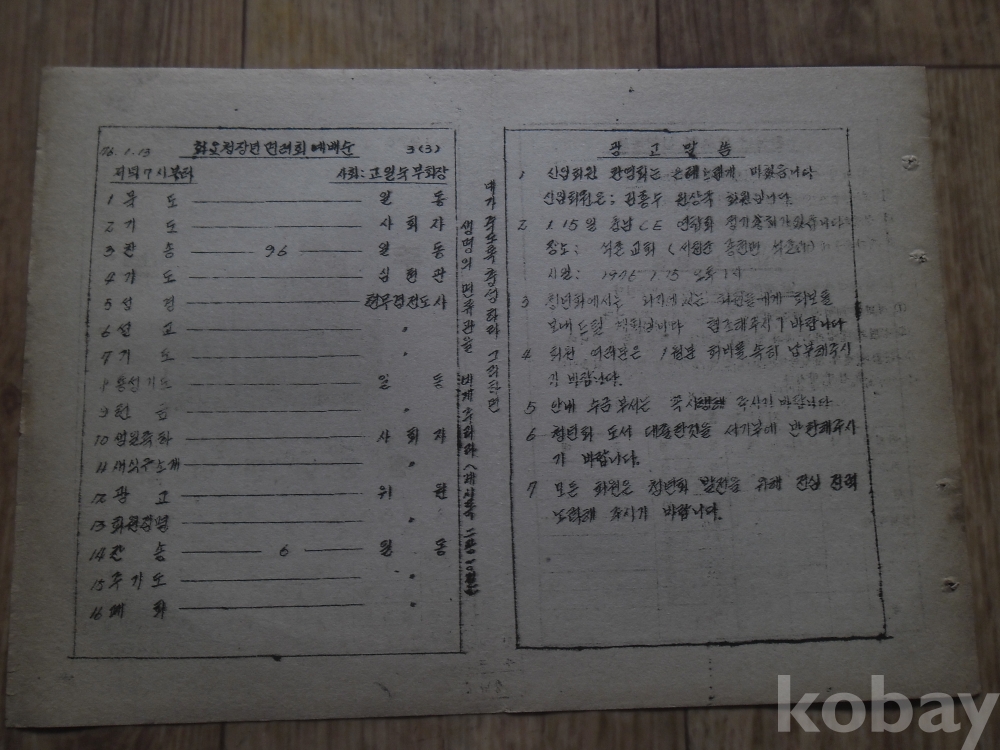 76. 1. 13 화요청장년 면려회 예배순 3(3)
저녁 7시부터 사회: 고원수 부회장
1 묵 도 일 동
2 기 도 사 회 자
3 찬 송 96 일 동
4 기 도 심 현 관
5 성 경 현무경전도사
6 설 교 〃
7 기 도 〃
8 통성기도 일 동
9 헌 금 〃
10 임원축하 사 회 자
11 새식구소개 〃
12 광 고 위 원
13 회원 〃
14 찬 송 6 일 동
15 주기도 〃
16 폐 회 〃
네가 죽도록 충성하라 그리하면
생명의 면류관을 네게 주리라 (계시록 二장 10절)
광 고 말 씀
1 신입회원 환영회는 은혜스럽게 마쳤습니다
신입회원은; 회원입니다
2 1.15일 충남 CE 연합회 정기총회가 있습니다
장소: 석촌교회 (서원군 송천면 석촌리)
시일: 1976 1 15
3 청년회에서는 타지에 있는 회원들에게 회보를
보내드릴 계획입니다 협조해주시기 바랍니다
4 회원 여러분은 1월분 회비를 속히 납부해주시
기 바랍니다.
5 안내 수금 부서는 주시기 바랍니다
6 청년회 도서 대출한것을 서기부에 반환해주시
기 바랍니다.
7 모든 회원은 청년회 발전을 위해 진심 전력
노력해 주시기 바랍니다.
kobay